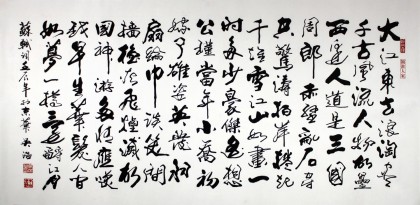 大江東去浪淘盡
千古風流人物故壘
西邊人道是三國
周郎赤壁亂石穿
空驚濤拍岸捲起
千堆雪江山如畫一
時多少豪傑遙想
公瑾當年小喬初
嫁了雄姿英發羽
扇綸巾談笑間
檣櫓灰飛煙滅故
國神遊多情應笑
我早生華髮人間
如夢一樽還酹江月
蘇軾詞壬辰年於京華